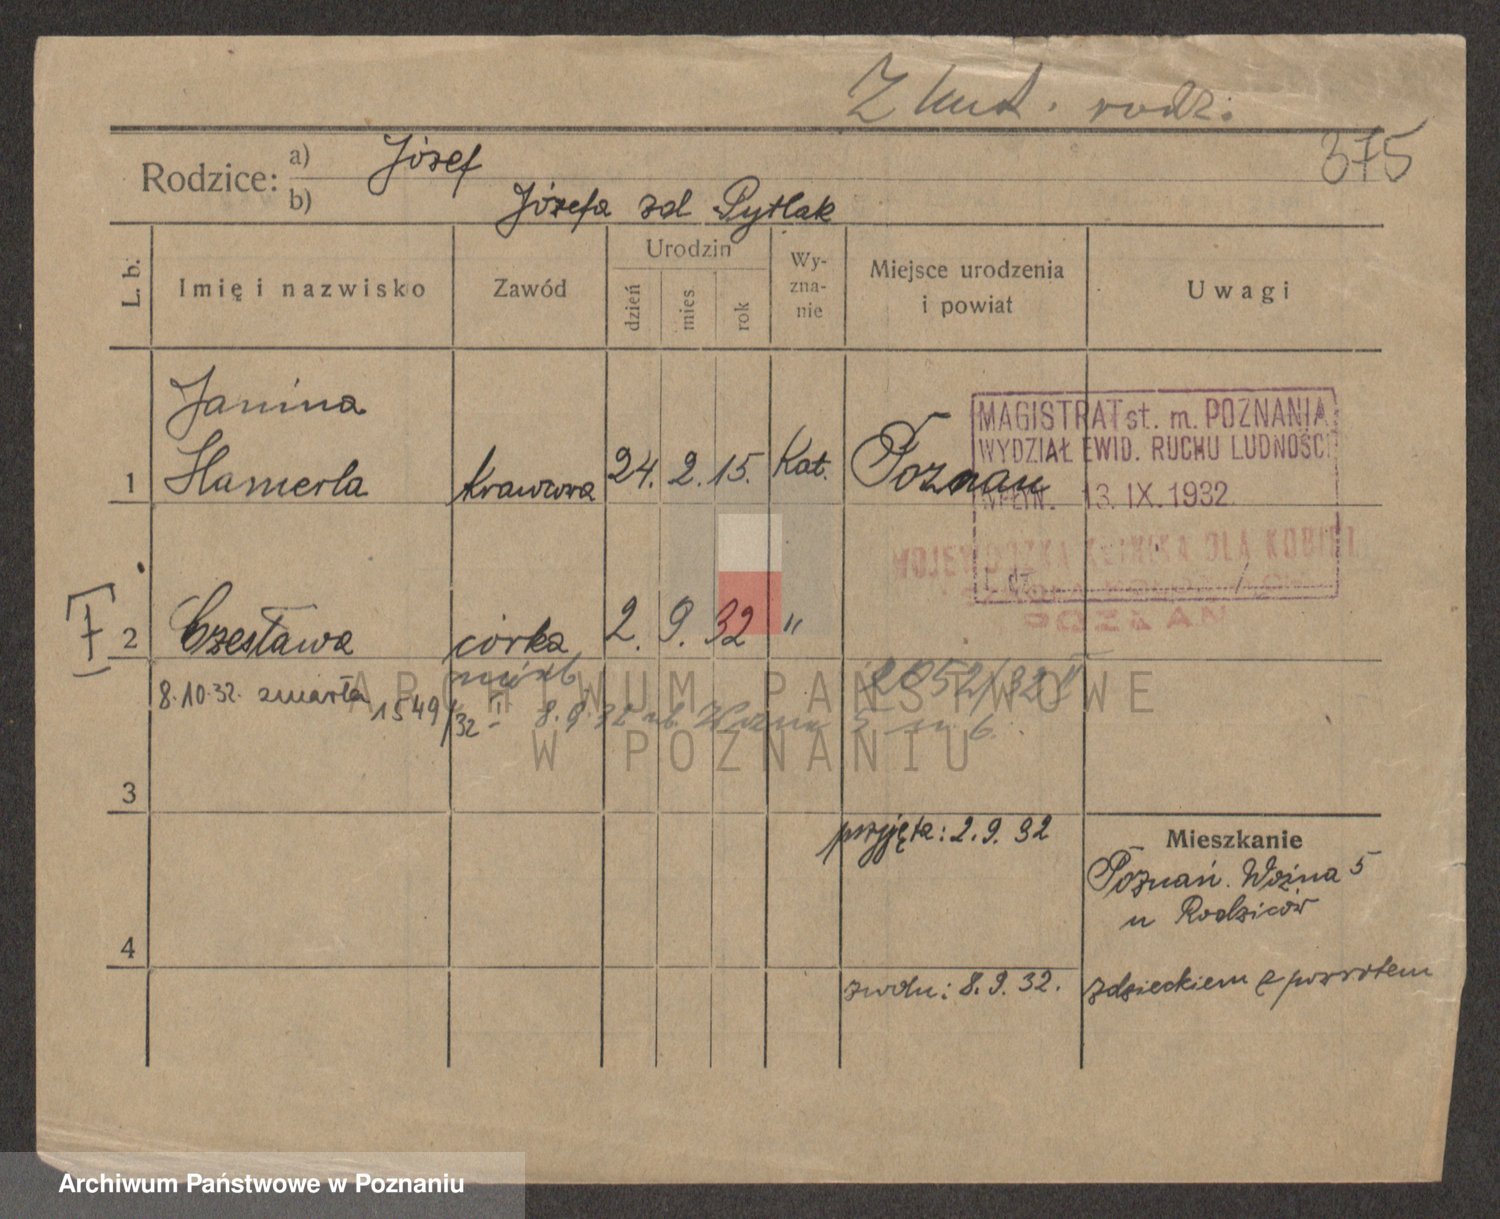 Z kart. rodz.
375
Rodzice: a) Józef
b) Józefa zd Pytlak
L. b. Imię i nazwisko Zawód Urodzin dzień mies. rok Wyzna-nie Miejsce urodzenia i powiat Uwagi
Janina
1 Hamerla krawcowa 24. 2. 15. Kat. Poznań
MAGISTRAT st. m. POZNANIA
WYDZIAŁ EWID. RUCHU LUDNOŚCI
WPŁYN. 13. IX. 1932
WOJEWÓDZKA KLINIKA DLA KOBIET
POZNAŃ
2 Czesława córka 2. 9. 32 "
nieśl.
8.10.32. zmarła 1549/32 II
2052/32 II
8.9.32 ul. Woźna 5 m 6.
3
przyjęta: 2.9.32
Mieszkanie
Poznań. Woźna 5
u Rodziców
4
zwoln: 8.9.32. z dzieckiem z powrotem
ARCHIWUM PAŃSTWOWE
W POZNANIU
Archiwum Państwowe w Poznaniu